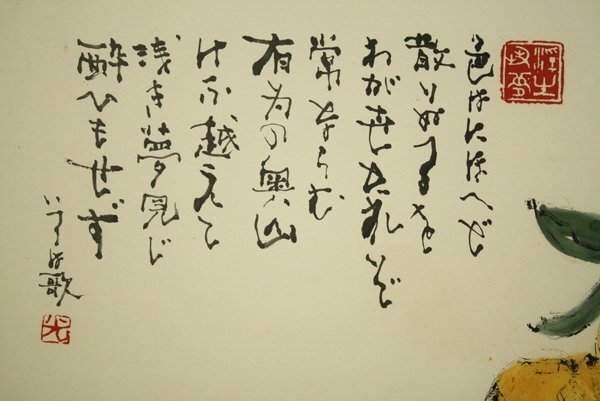 色はにほへど
散りぬるを
わが世たれぞ
常ならむ
有為の奥山
けふ越えて
浅き夢見じ
酔ひもせず
いろは歌